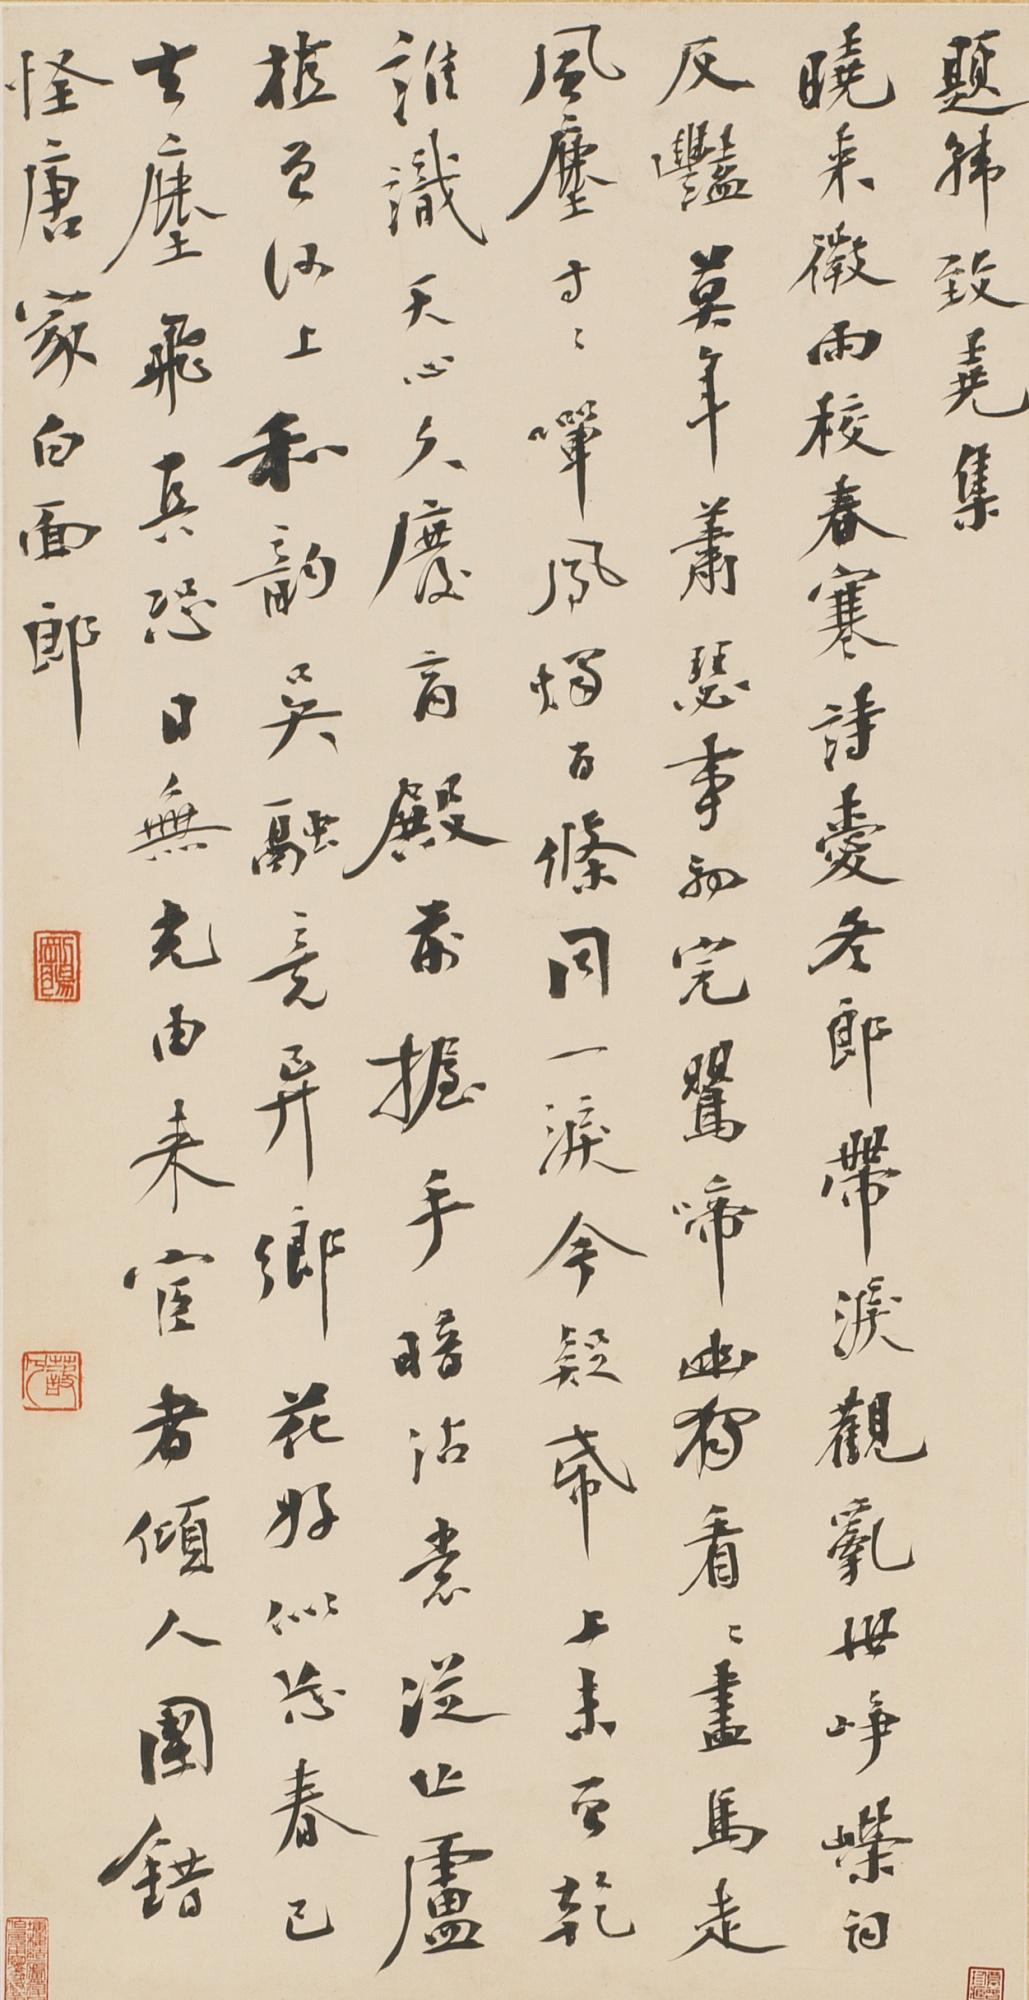 題韓致堯集
曉來微雨校春寒詩愛冬郎帶淚觀亂世崢嶸詞
反豔莫年蕭瑟事初完鴛啼幽獨看〻盡馬走
風塵寸〻嘽鳳燭百條同一淚今疑希上未曾乾
誰識天心久廢商殿前握手暗沾裳從亡盧
植曾河上和韵吳融竟異鄉花好似落春已
去塵飛真恐日無光由來宦者傾人國錯
怪唐家白面郎